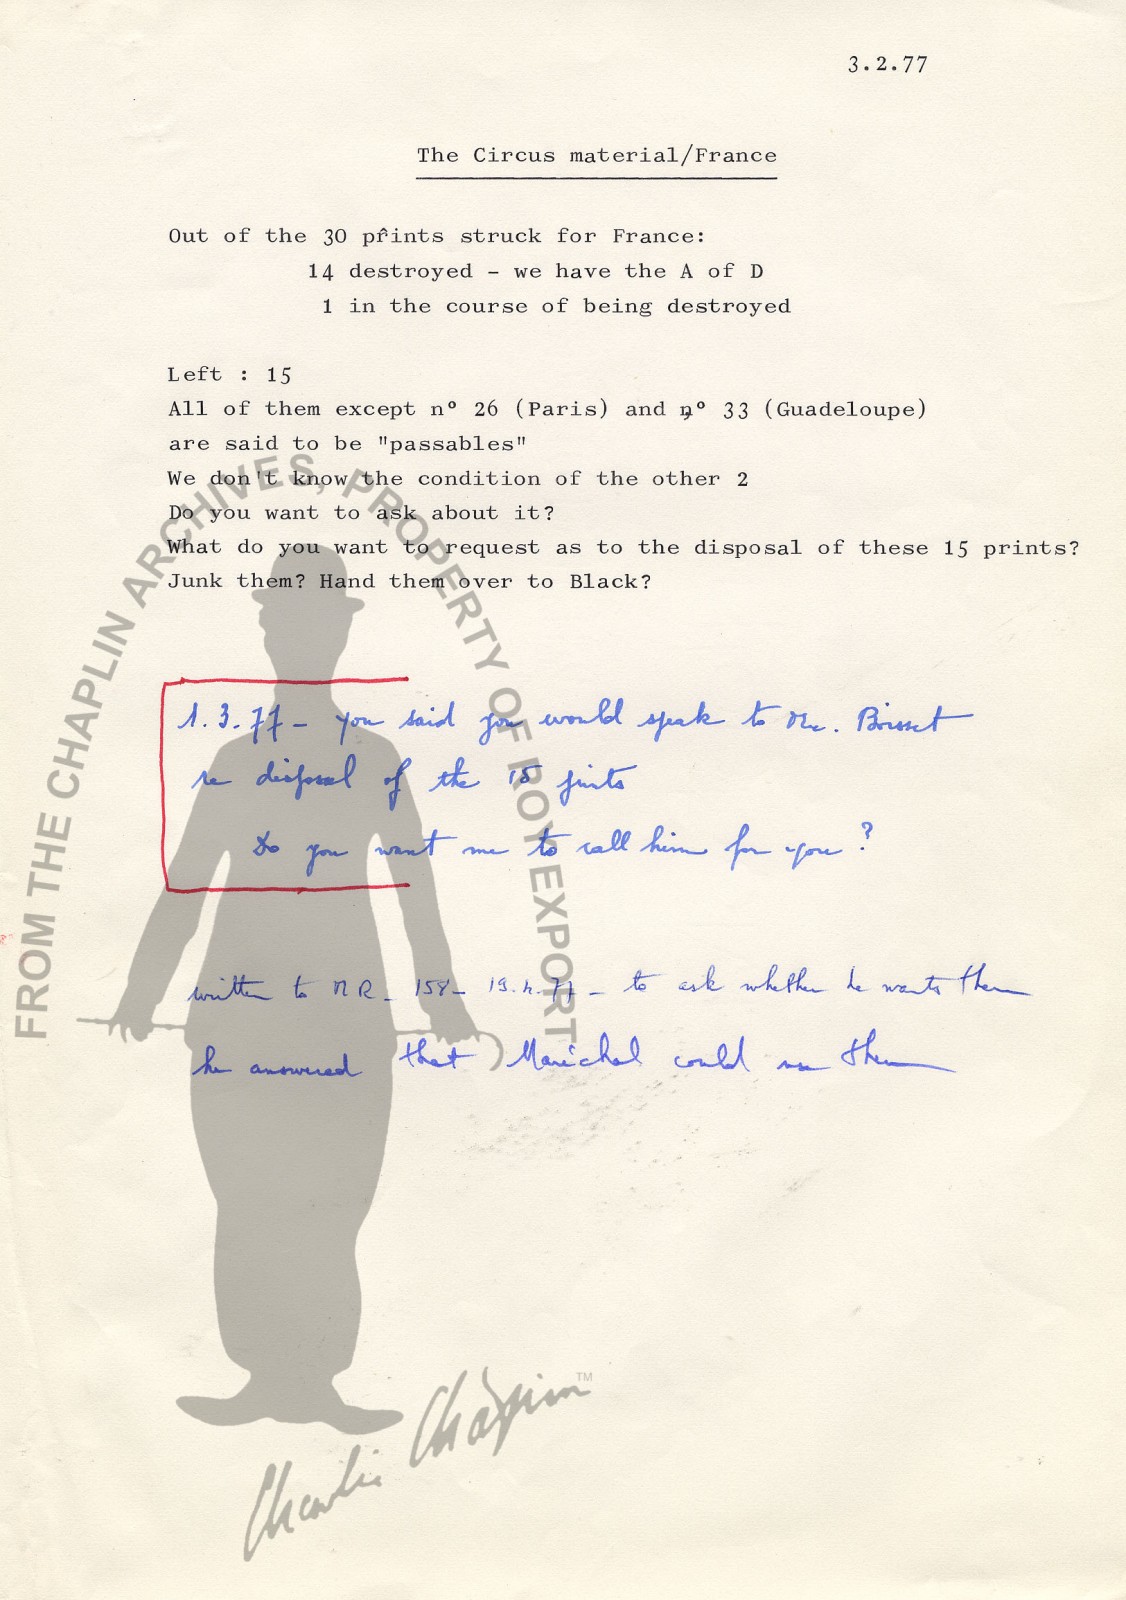 3.2.77
The Circus material/France
Out of the 30 prints struck for France:
14 destroyed - we have the A of D
1 in the course of being destroyed
Left : 15
All of them except n° 26 (Paris) and n° 33 (Guadeloupe)
are said to be "passables"
We don't know the condition of the other 2
Do you want to ask about it?
What do you want to request as to the disposal of these 15 prints?
Junk them? Hand them over to Black?
1.3.77 - you said you would speak to Mr. Boisset
re disposal of the 15 prints
Do you want me to call him for you?
written to MR - 158 - 19.4.77 - to ask whether he wants them
he answered that Maréchal could use them
FROM THE CHAPLIN ARCHIVES, PROPERTY OF ROY EXPORT
Charlie Chaplin TM